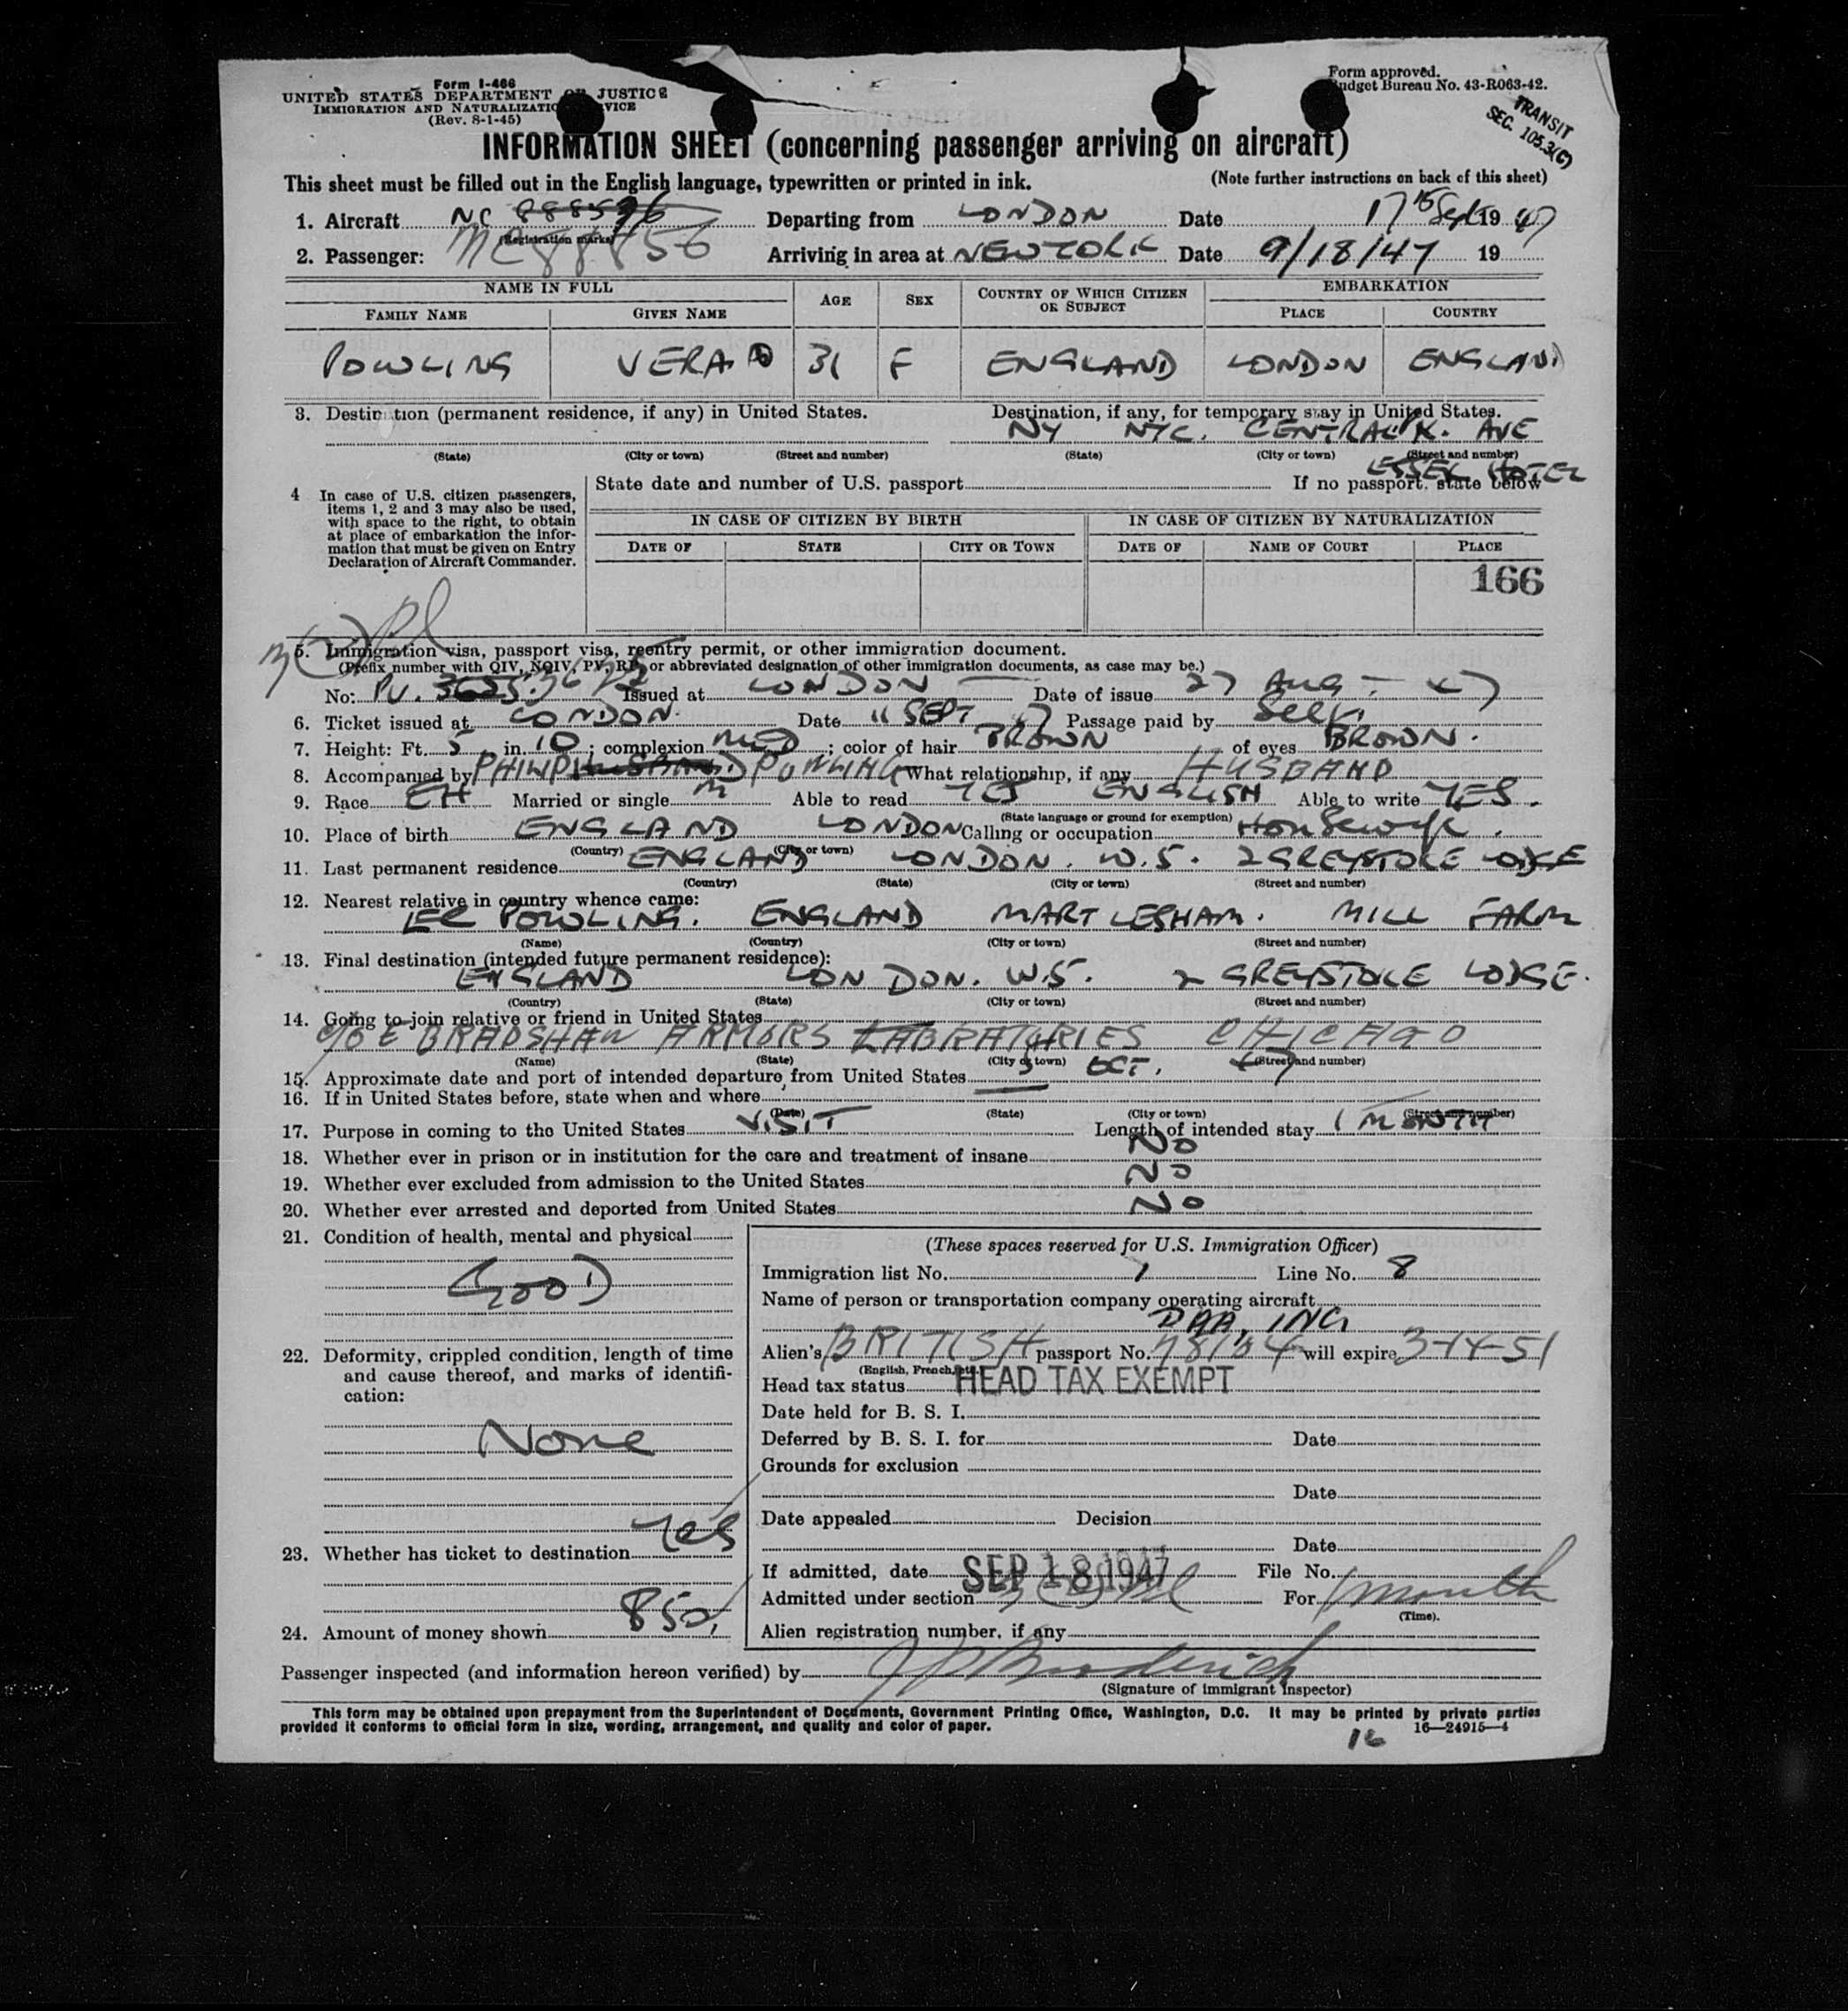 Form I-466
UNITED STATES DEPARTMENT OF JUSTICE
IMMIGRATION AND NATURALIZATION SERVICE
(Rev. 8-1-45)
Form approved.
Budget Bureau No. 43-R063-42.
TRANSIT
SEC. 105.3(C)
INFORMATION SHEET (concerning passenger arriving on aircraft)
This sheet must be filled out in the English language, typewritten or printed in ink. (Note further instructions on back of this sheet)
1. Aircraft NC Departing from LONDON Date 17th Sept 1947
(Registration marks)
2. Passenger: NC 88856 Arriving in area at NEW YORK Date 9/18/47 19
NAME IN FULL AGE SEX COUNTRY OF WHICH CITIZEN OR SUBJECT EMBARKATION
FAMILY NAME GIVEN NAME PLACE COUNTRY
POWLING VERA 31 F ENGLAND LONDON ENGLAND
3. Destination (permanent residence, if any) in United States. Destination, if any, for temporary stay in United States.
NY NYC. CENTRAL PK. AVE
(State) (City or town) (Street and number) (State) (City or town) (Street and number)
ESSEX HOTEL
4 In case of U.S. citizen passengers, items 1, 2 and 3 may also be used, with space to the right, to obtain at place of embarkation the information that must be given on Entry Declaration of Aircraft Commander.
State date and number of U.S. passport If no passport, state below
IN CASE OF CITIZEN BY BIRTH IN CASE OF CITIZEN BY NATURALIZATION
DATE OF STATE CITY OR TOWN DATE OF NAME OF COURT PLACE
166
5. Immigration visa, passport visa, reentry permit, or other immigration document.
(Prefix number with QIV, NQIV, PV, RP, or abbreviated designation of other immigration documents, as case may be.)
No: PV. Issued at LONDON Date of issue 27 AUG - 47
6. Ticket issued at LONDON. Date 11 SEPT 47 Passage paid by Self.
7. Height: Ft. 5 in. 10 ; complexion MED ; color of hair BROWN of eyes BROWN.
8. Accompanied by PHILIP POWLING What relationship, if any HUSBAND
9. Race EH Married or single M Able to read YES ENGLISH Able to write YES.
(State language or ground for exemption)
10. Place of birth ENGLAND LONDON Calling or occupation Housewife.
(Country) (City or town)
11. Last permanent residence ENGLAND LONDON. W.5. 2 GREYSTOKE LODGE
(Country) (State) (City or town) (Street and number)
12. Nearest relative in country whence came:
POWLING. ENGLAND MARTLESHAM. MILL FARM
(Name) (Country) (City or town) (Street and number)
13. Final destination (intended future permanent residence):
ENGLAND LONDON. W.5. 2 GREYSTOKE LODGE.
(Country) (State) (City or town) (Street and number)
14. Going to join relative or friend in United States
c/o E BRADSHAW ARMORS LABRATORIES CHICAGO
(Name) (State) (City or town) (Street and number)
15. Approximate date and port of intended departure from United States OCT. 47
16. If in United States before, state when and where —
(Date) (State) (City or town) (Street and number)
17. Purpose in coming to the United States VISIT Length of intended stay 1 MONTH
18. Whether ever in prison or in institution for the care and treatment of insane NO
19. Whether ever excluded from admission to the United States NO
20. Whether ever arrested and deported from United States NO
21. Condition of health, mental and physical
GOOD
22. Deformity, crippled condition, length of time and cause thereof, and marks of identification:
None
23. Whether has ticket to destination Yes
24. Amount of money shown 850
(These spaces reserved for U.S. Immigration Officer)
Immigration list No. 1 Line No. 8
Name of person or transportation company operating aircraft
PAA, INC
Alien's BRITISH passport No. will expire 3-14-51
(English, French, etc.)
Head tax status HEAD TAX EXEMPT
Date held for B. S. I.
Deferred by B. S. I. for Date
Grounds for exclusion
Date
Date appealed Decision
Date
If admitted, date SEP 18 1947 File No.
Admitted under section For 1 month
(Time).
Alien registration number, if any
Passenger inspected (and information hereon verified) by Broderick
(Signature of immigrant inspector)
This form may be obtained upon prepayment from the Superintendent of Documents, Government Printing Office, Washington, D.C. It may be printed by private parties
provided it conforms to official form in size, wording, arrangement, and quality and color of paper. 16—24915—4
16